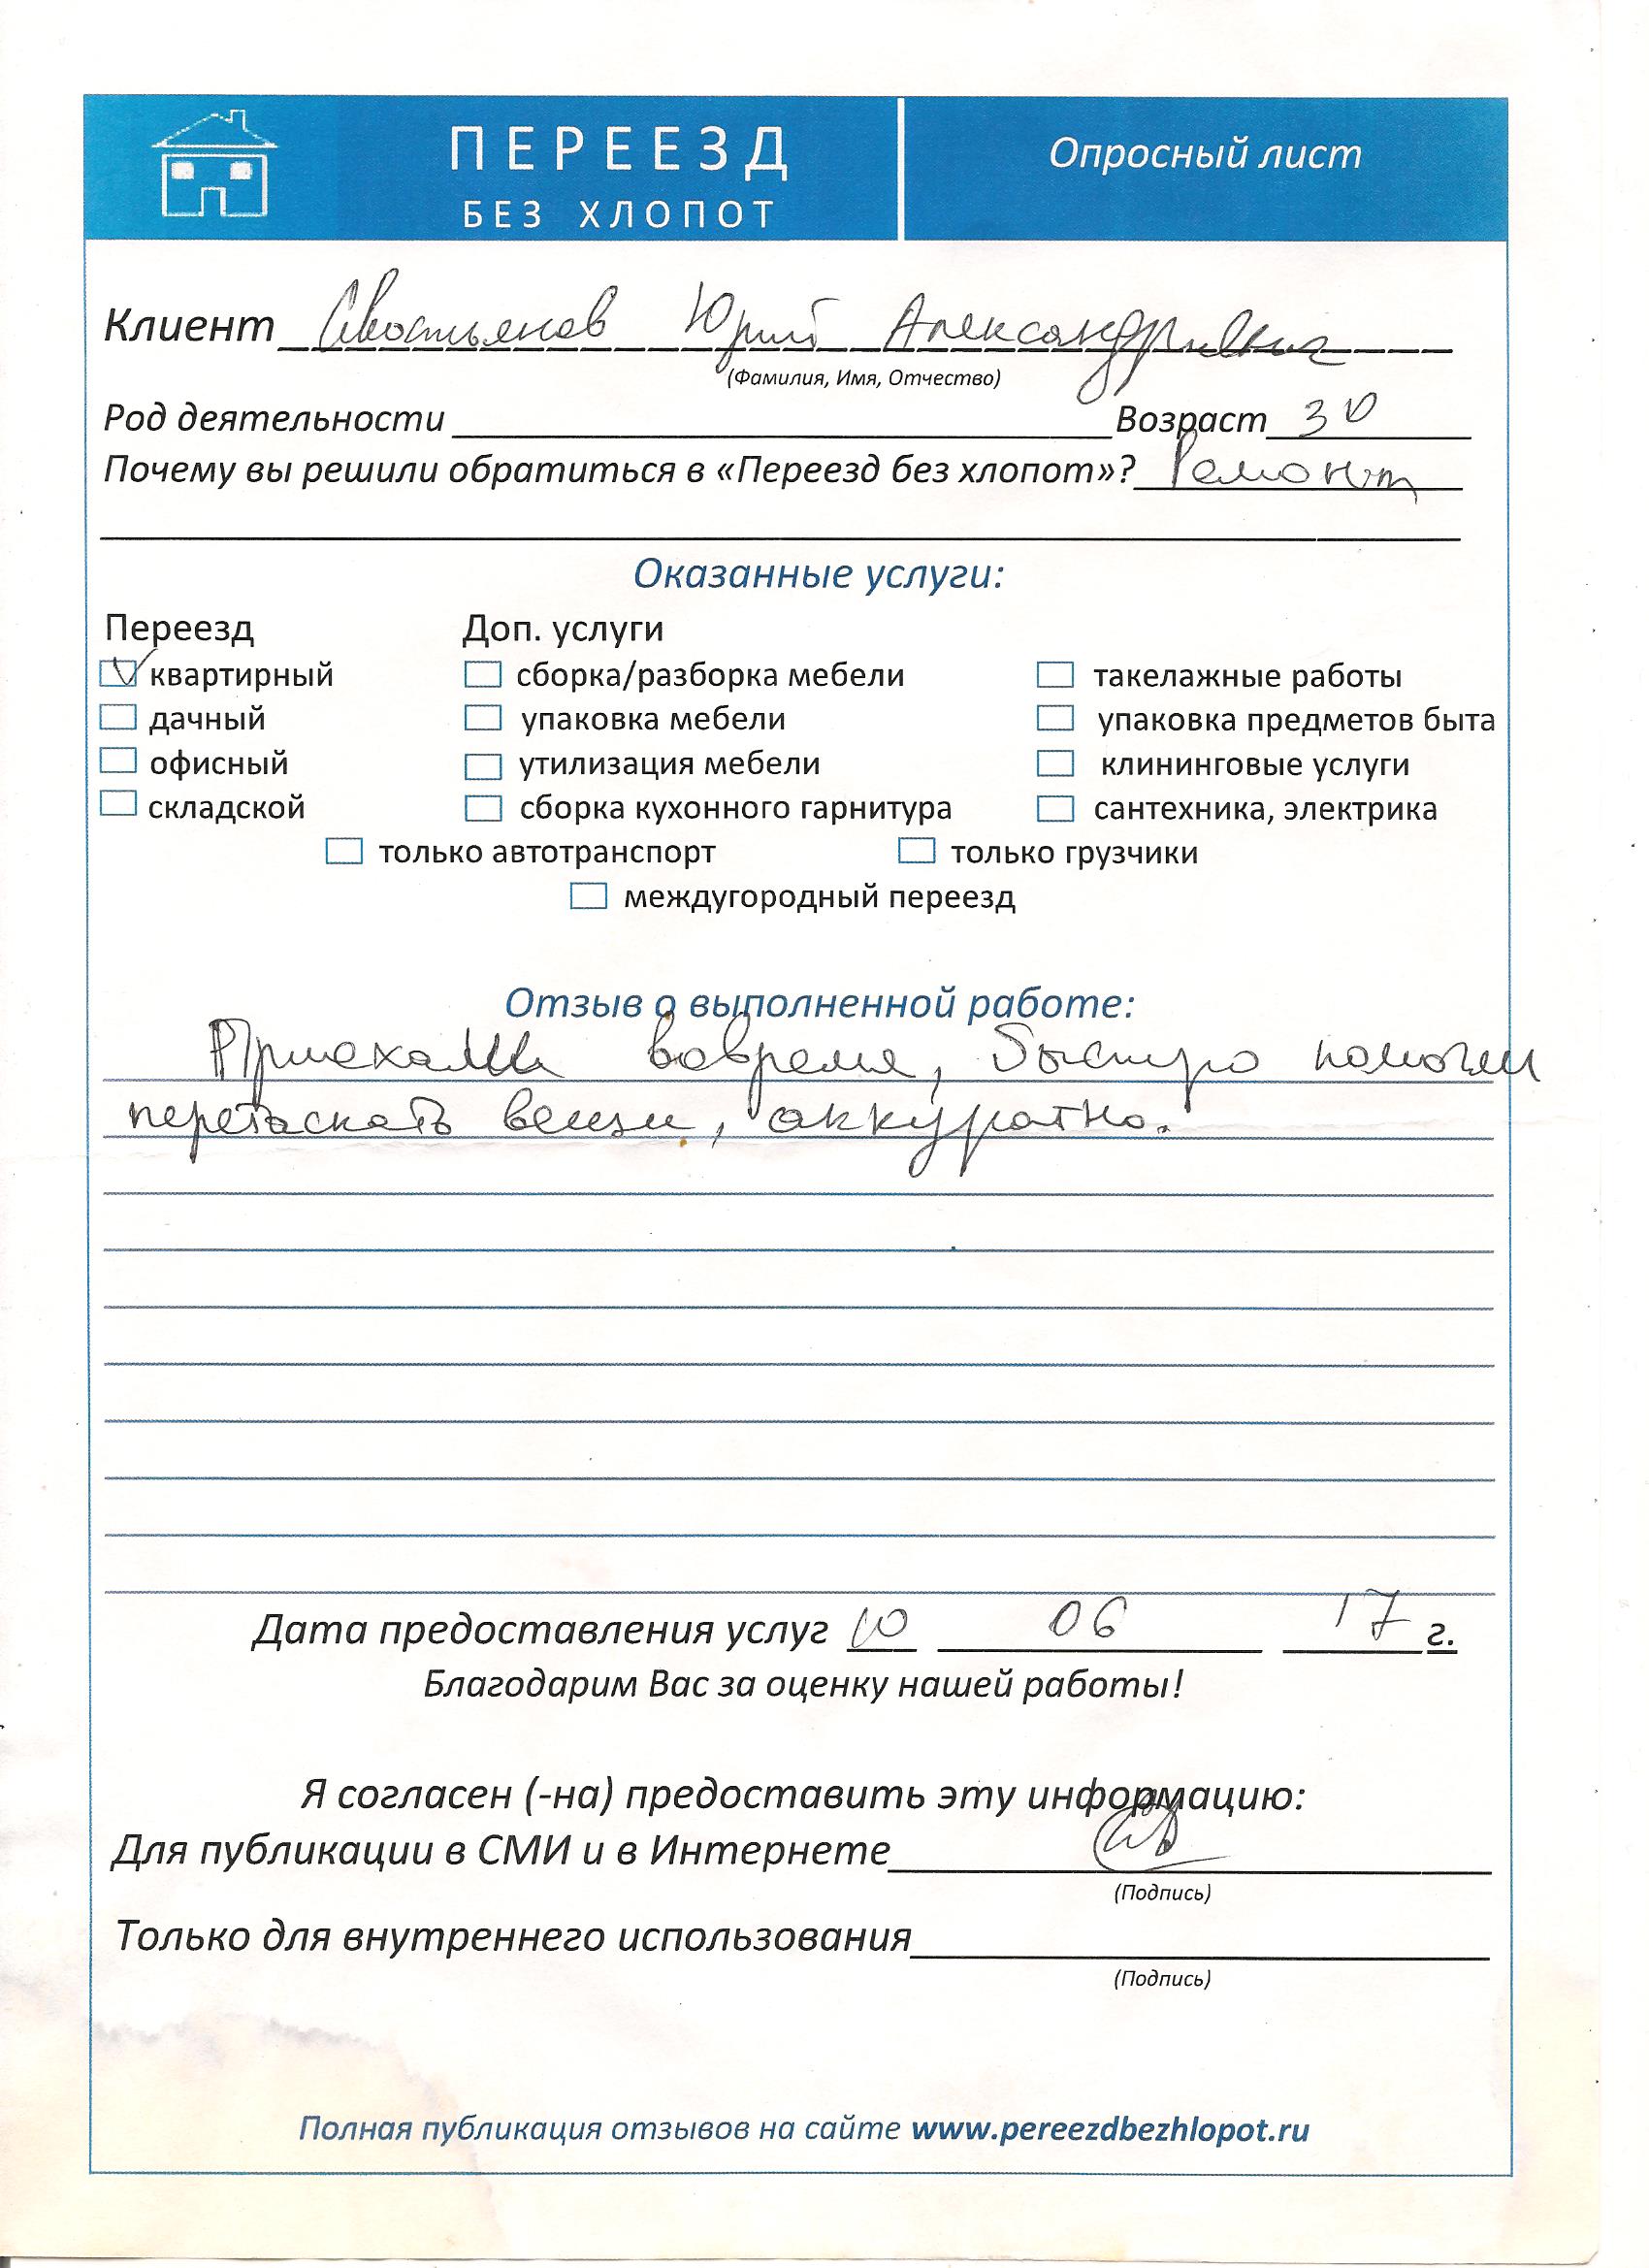 ПЕРЕЕЗД
БЕЗ ХЛОПОТ
Опросный лист
Клиент Юрий Александрович
(Фамилия, Имя, Отчество)
Род деятельности Возраст 30
Почему вы решили обратиться в «Переезд без хлопот»? Ремонт
Оказанные услуги:
Переезд Доп. услуги
квартирный сборка/разборка мебели такелажные работы
дачный упаковка мебели упаковка предметов быта
офисный утилизация мебели клининговые услуги
складской сборка кухонного гарнитура сантехника, электрика
только автотранспорт только грузчики
междугородный переезд
Отзыв о выполненной работе:
Приехали вовремя, быстро помогли
перетаскать вещи, аккуратно.
Дата предоставления услуг 10 06 17 г.
Благодарим Вас за оценку нашей работы!
Я согласен (-на) предоставить эту информацию:
Для публикации в СМИ и в Интернете
(Подпись)
Только для внутреннего использования
(Подпись)
Полная публикация отзывов на сайте www.pereezdbezhlopot.ru